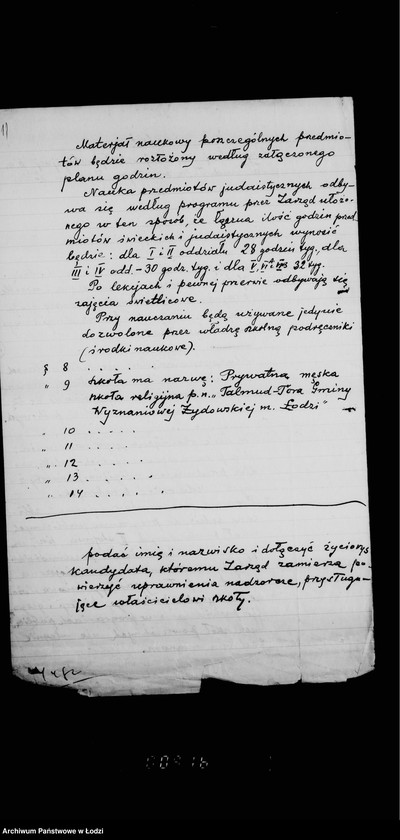 11
Materjał naukowy poszczególnych przedmio-
tów będzie rozłożony według załączonego
planu godzin.
Nauka przedmiotów judaistycznych odby-
wa się według programu przez Zarząd ułożo-
nego w ten sposób, że łączna ilość godzin przed
miotów świeckich i judaistycznych wynosić
będzie: dla I i II oddziału 28 godzin tyg., dla
III i IV odd. – 30 godz. tyg. i dla V, VI i VII 32 tyg.
Po lekcjach i pewnej przerwie odbywają się
zajęcia świetlicowe.
Przy nauczaniu będą używane jedynie
dozwolone przez władzę szkolną podręczniki
(środki naukowe).
§ 8 . . . . . .
„ 9 Szkoła ma nazwę: Prywatna męska
szkoła religijna p.n. „Talmud-Tora Gminy
Wyznaniowej Żydowskiej m. Łodzi" –
„ 10 . . . . .
„ 11 . . . .
„ 12 . . . . .
„ 13 . . . . .
„ 14 . . . . . .
podać imię i nazwisko i dołączyć życiorys
kandydata, któremu Zarząd zamierza po-
wierzyć uprawnienia nadzorcze, przysługu-
jące właścicielowi szkoły.
Archiwum Państwowe w Łodzi